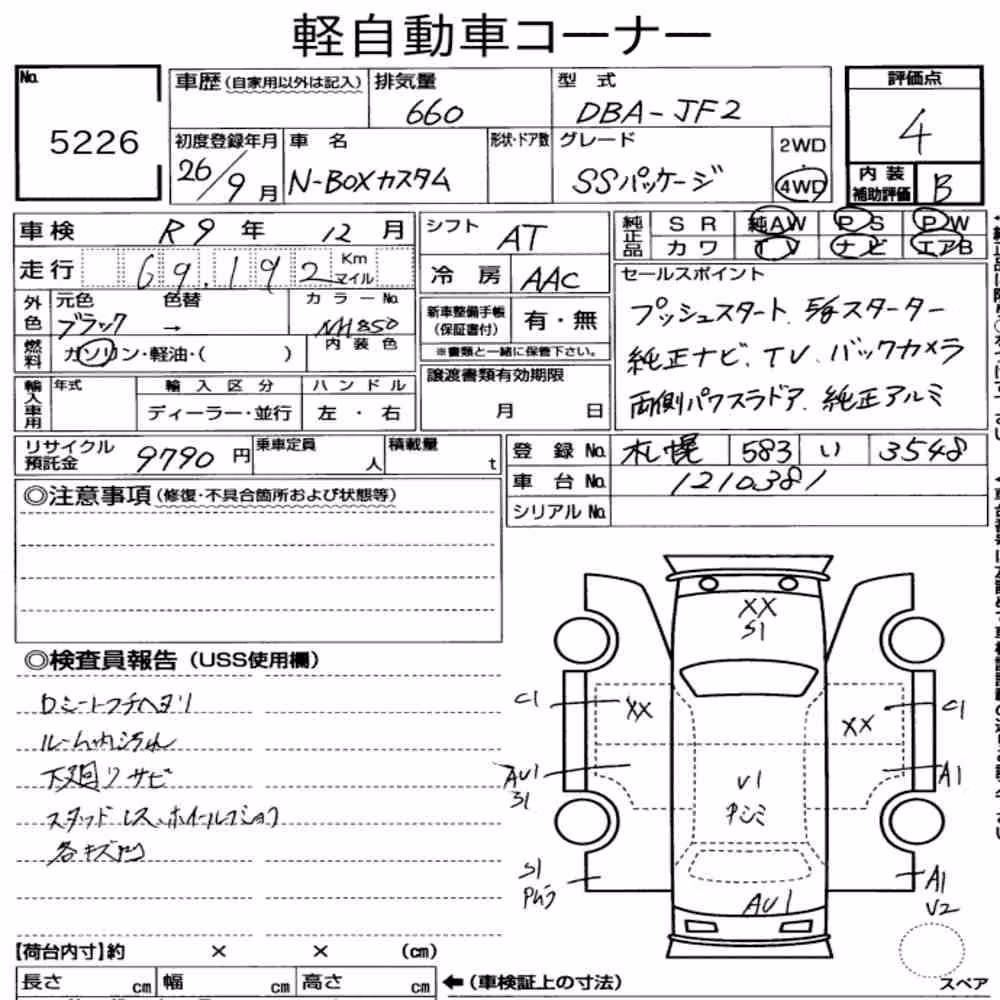 軽自動車コーナー
No. 5226
車歴 (自家用以外は記入) 排気量 660 型式 DBA-JF2
評価点 4
初度登録年月 26/9月 車名 N-BOXカスタム 形状・ドア数 グレード SSパッケージ 2WD・4WD
内装補助評価 B
車検 R9年 12月
走行 69,192 Km マイル
シフト AT
冷房 AAC
純正品 SR 純AW PS PW
カワ TV ナビ エアB
外色 元色 ブラック 色替 → カラーNo. NH850
燃料 ガソリン・軽油・( ) 内装色
新車整備手帳 (保証書付) 有・無
※書類と一緒に保管下さい。
セールスポイント
プッシュスタート、
スターター
純正ナビ、TV、バックカメラ
両側パワスラドア、純正アルミ
輸入車用 年式 輸入区分 ハンドル
ディーラー・並行 左・右
譲渡書類有効期限
月 日
リサイクル預託金 9790円 乗車定員 人 積載量 t
登録No. 札幌 583 い 3548
車台No. 1210381
シリアルNo.
◎注意事項 (修復・不具合箇所および状態等)
◎検査員報告 (USS使用欄)
Dシートフチヘタリ
ルーム内汚れ
下廻りサビ
スタッドレス、ホイール
各キズ凹
XX
S1
C1
XX
XX
C1
AU1
S1
A1
U1
S1
A1
U2
AU1
【荷台内寸】約 × × (cm)
長さ cm 幅 cm 高さ cm
←(車検証上の寸法)
スペア